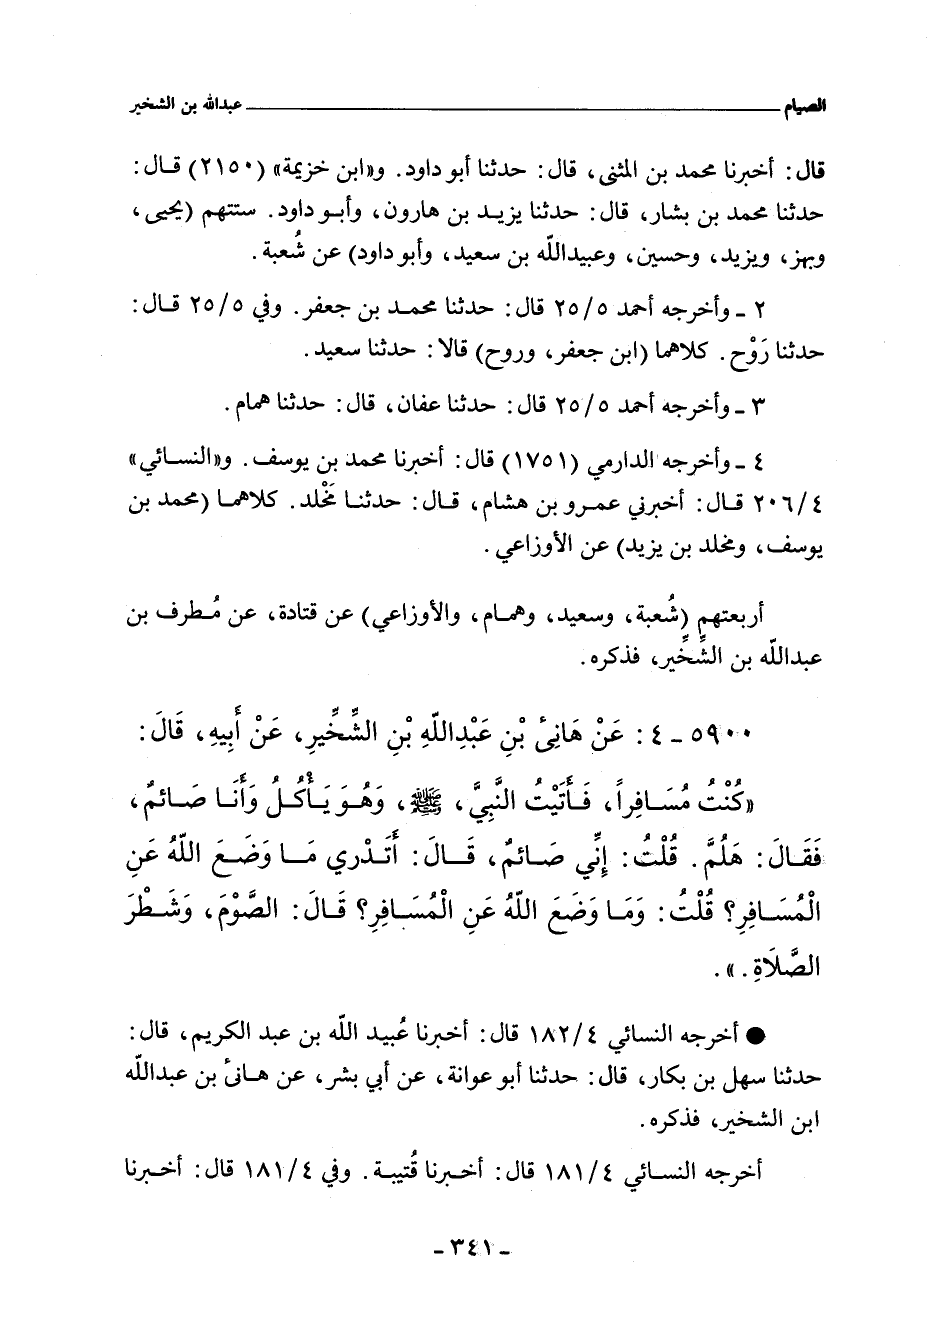 الصيام ــــــــــ عبدالله بن الشخير
قال: أخبرنا محمد بن المثنى، قال: حدثنا أبو داود. و«ابن خزيمة» (٢١٥٠) قال:
حدثنا محمد بن بشار، قال: حدثنا يزيد بن هارون، وأبو داود. ستتهم (يحيى،
وبهز، ويزيد، وحسين، وعبيدالله بن سعيد، وأبو داود) عن شُعبة.
٢ ـ وأخرجه أحمد ٢٥/٥ قال: حدثنا محمد بن جعفر. وفي ٢٥/٥ قال:
حدثنا رَوْح. كلاهما (ابن جعفر، وروح) قالا: حدثنا سعيد.
٣ ـ وأخرجه أحمد ٢٥/٥ قال: حدثنا عفان، قال: حدثنا همام.
٤ ـ وأخرجه الدارمي (١٧٥١) قال: أخبرنا محمد بن يوسف. و«النسائي»
٢٠٦/٤ قال: أخبرني عمرو بن هشام، قال: حدثنا مَخْلد. كلاهما (محمد بن
يوسف، ومخلد بن يزيد) عن الأوزاعي.
أربعتهم (شُعبة، وسعيد، وهمام، والأوزاعي) عن قتادة، عن مُطرف بن
عبدالله بن الشِّخِّير، فذكره.
٥٩٠٠ ـ ٤: عَنْ هَانِئِ بْنِ عَبْدِاللّٰهِ بْنِ الشِّخِّيرِ، عَنْ أَبِيهِ، قَالَ:
«كُنْتُ مُسَافِراً، فَأَتَيْتُ النَّبِيَّ، ﷺ، وَهُوَ يَأْكُلُ وَأَنَا صَائِمٌ،
فَقَالَ: هَلُمَّ. قُلْتُ: إِنِّي صَائِمٌ، قَالَ: أَتَدْرِي مَا وَضَعَ اللّٰهُ عَنِ
الْمُسَافِرِ؟ قُلْتُ: وَمَا وَضَعَ اللّٰهُ عَنِ الْمُسَافِرِ؟ قَالَ: الصَّوْمَ، وَشَطْرَ
الصَّلَاةِ.».
● أخرجه النسائي ١٨٢/٤ قال: أخبرنا عُبيد الله بن عبد الكريم، قال:
حدثنا سهل بن بكار، قال: حدثنا أبو عوانة، عن أبي بشر، عن هانئ بن عبدالله
ابن الشخير، فذكره.
أخرجه النسائي ١٨١/٤ قال: أخبرنا قُتيبة. وفي ١٨١/٤ قال: أخبرنا
ـ ٣٤١ ـ